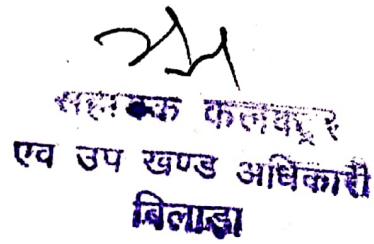 सहायक कलक्टर
एवं उप खण्ड अधिकारी
बिलाड़ा